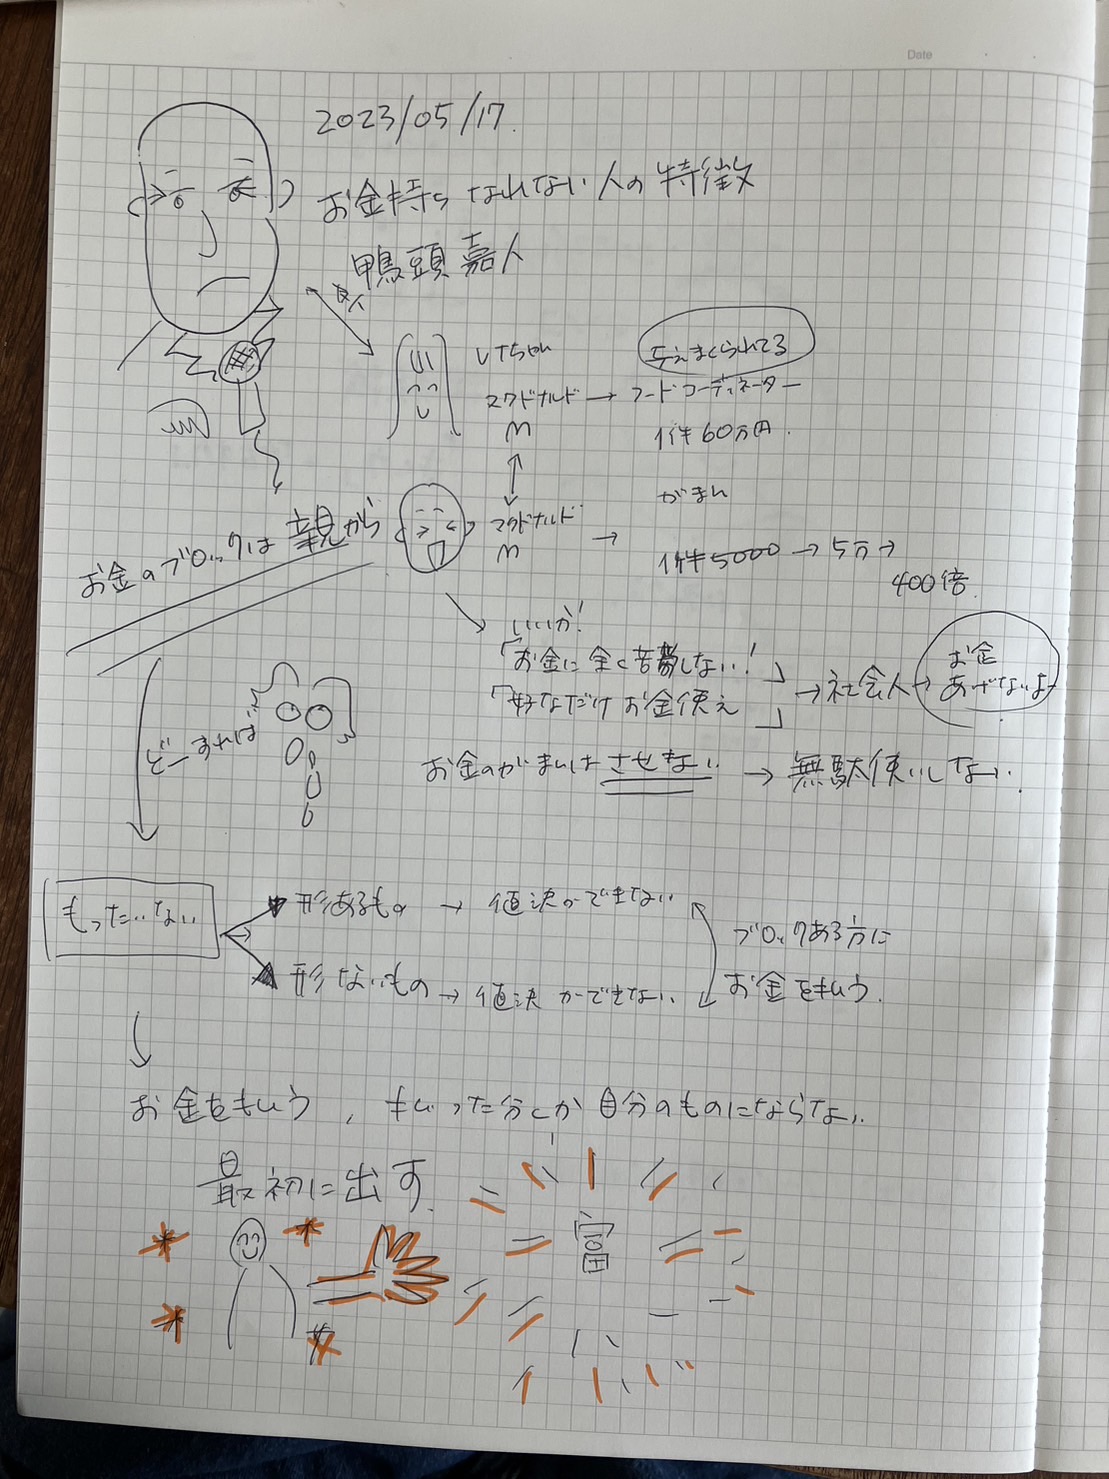 Date
2023/05/17.
お金持ちなれない人の特徴
鴨頭嘉人
友人
しTちゃん
与えまくられてる
マクドナルド → フードコーディネーター
M
1件60万円.
がまん
マクドナルド →
M
1件5000 → 5万 →
400倍.
お金のブロックは親から
いいか!
「お金に全く苦労しない!」
「好なだけお金使え」
→ 社会人 → お金あげないよ
どーすれば
お金のがまんはさせない → 無駄使いしない.
もったいない
形あるもの → 値決めできない
形ないもの → 値決めできない
ブロックある方に
お金をもらう.
お金をもらう, もらった分しか自分のものにならない.
最初に出す.
富